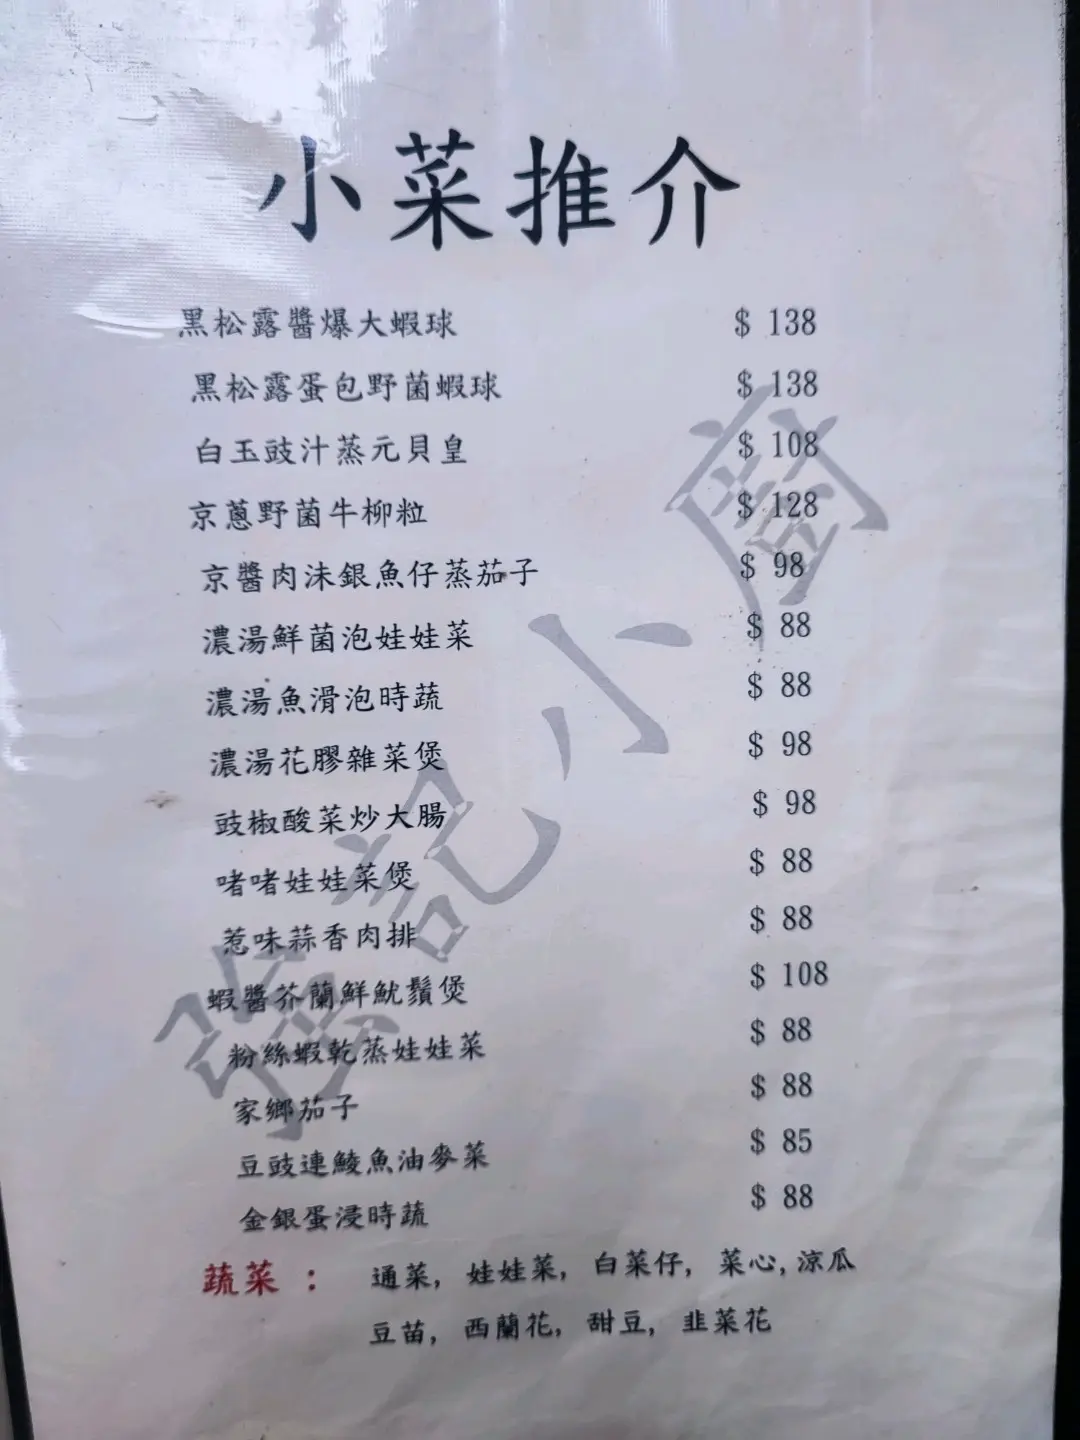 小菜推介
黑松露醬爆大蝦球 $ 138
黑松露蛋包野菌蝦球 $ 138
白玉豉汁蒸元貝皇 $ 108
京蔥野菌牛柳粒 $ 128
京醬肉沬銀魚仔蒸茄子 $ 98
濃湯鮮菌泡娃娃菜 $ 88
濃湯魚滑泡時蔬 $ 88
濃湯花膠雜菜煲 $ 98
豉椒酸菜炒大腸 $ 98
啫啫娃娃菜煲 $ 88
惹味蒜香肉排 $ 88
蝦醬芥蘭鮮魷鬚煲 $ 108
粉絲蝦乾蒸娃娃菜 $ 88
家鄉茄子 $ 88
豆豉連鯪魚油麥菜 $ 85
金銀蛋浸時蔬 $ 88
蔬菜： 通菜, 娃娃菜, 白菜仔, 菜心, 涼瓜
豆苗, 西蘭花, 甜豆, 韭菜花
強記小廚